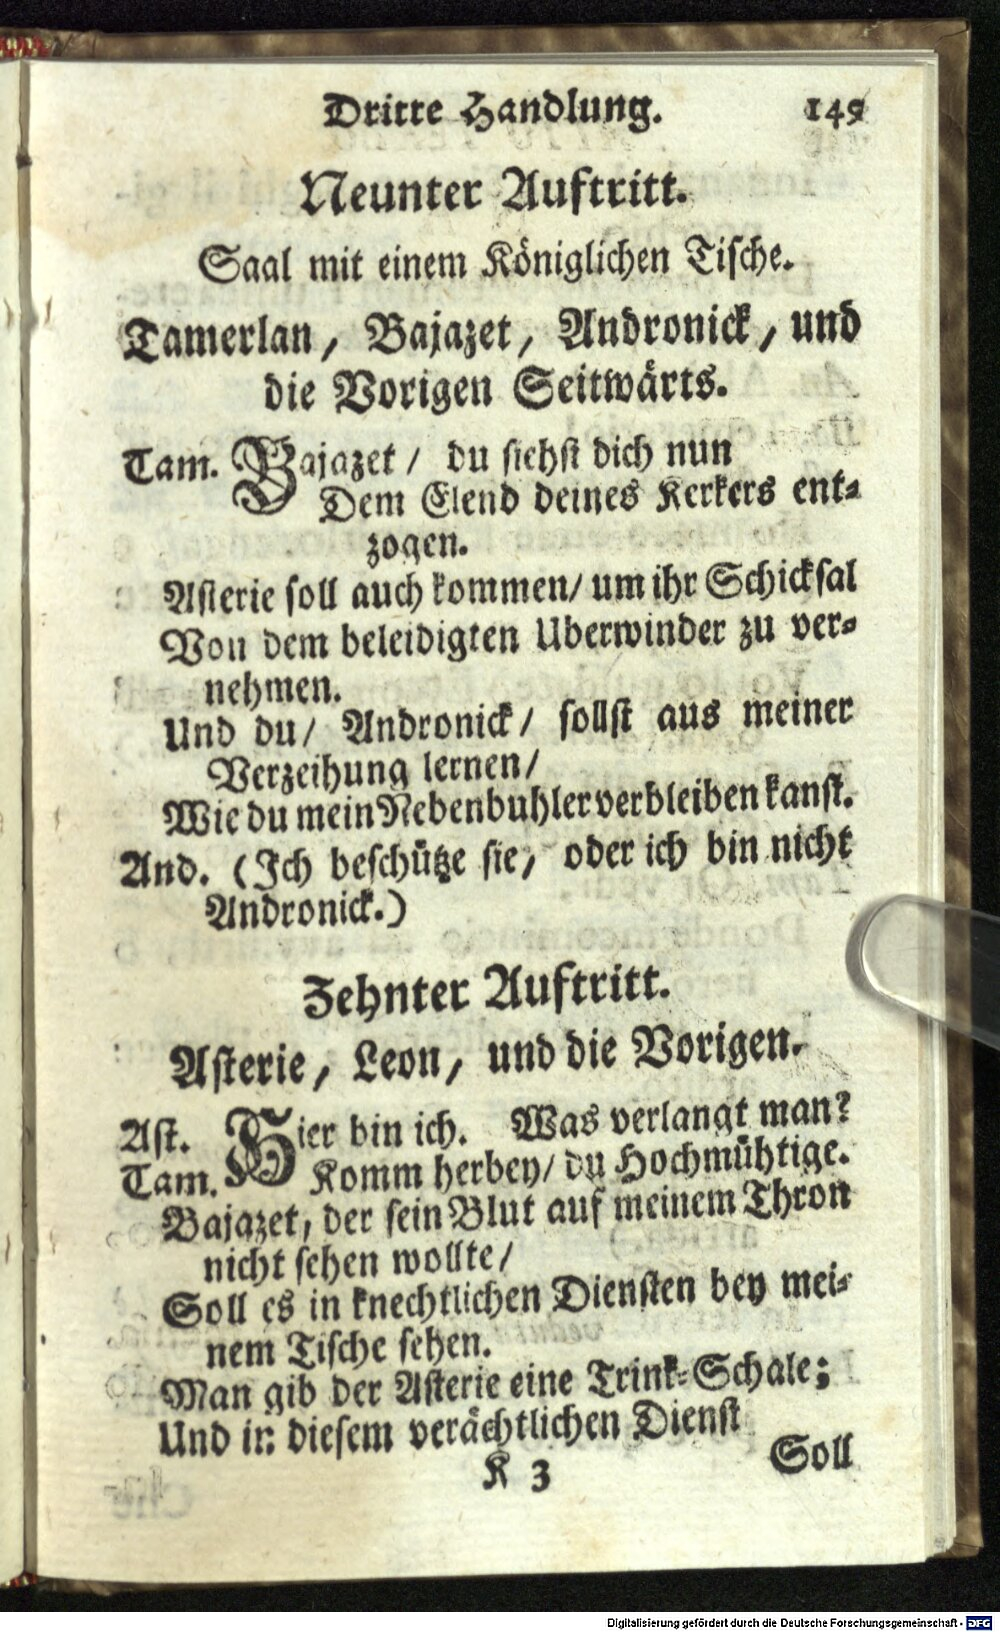 Dritte Handlung. 149
Neunter Auftritt.
Saal mit einem Königlichen Tische.
Tamerlan, Bajazet, Andronick, und
die Vorigen Seitwärts.
Tam. Bajazet / du siehst dich nun
Dem Elend deines Kerkers ent-
zogen.
Asterie soll auch kommen/ um ihr Schicksal
Von dem beleidigten Uberwinder zu ver-
nehmen.
Und du/ Andronick/ sollst aus meiner
Verzeihung lernen/
Wie du mein Nebenbuhler verbleiben kanst.
And. (Ich beschütze sie, oder ich bin nicht
Andronick.)
Zehnter Auftritt.
Asterie, Leon, und die Vorigen.
Ast. Hier bin ich. Was verlangt man?
Tam. Komm herbey/ du Hochmühtige.
Bajazet, der sein Blut auf meinem Thron
nicht sehen wollte/
Soll es in knechtlichen Diensten bey mei-
nem Tische sehen.
Man gib der Asterie eine Trink-Schale;
Und in diesem verächtlichen Dienst
K 3 Soll
Digitalisierung gefördert durch die Deutsche Forschungsgemeinschaft - DFG